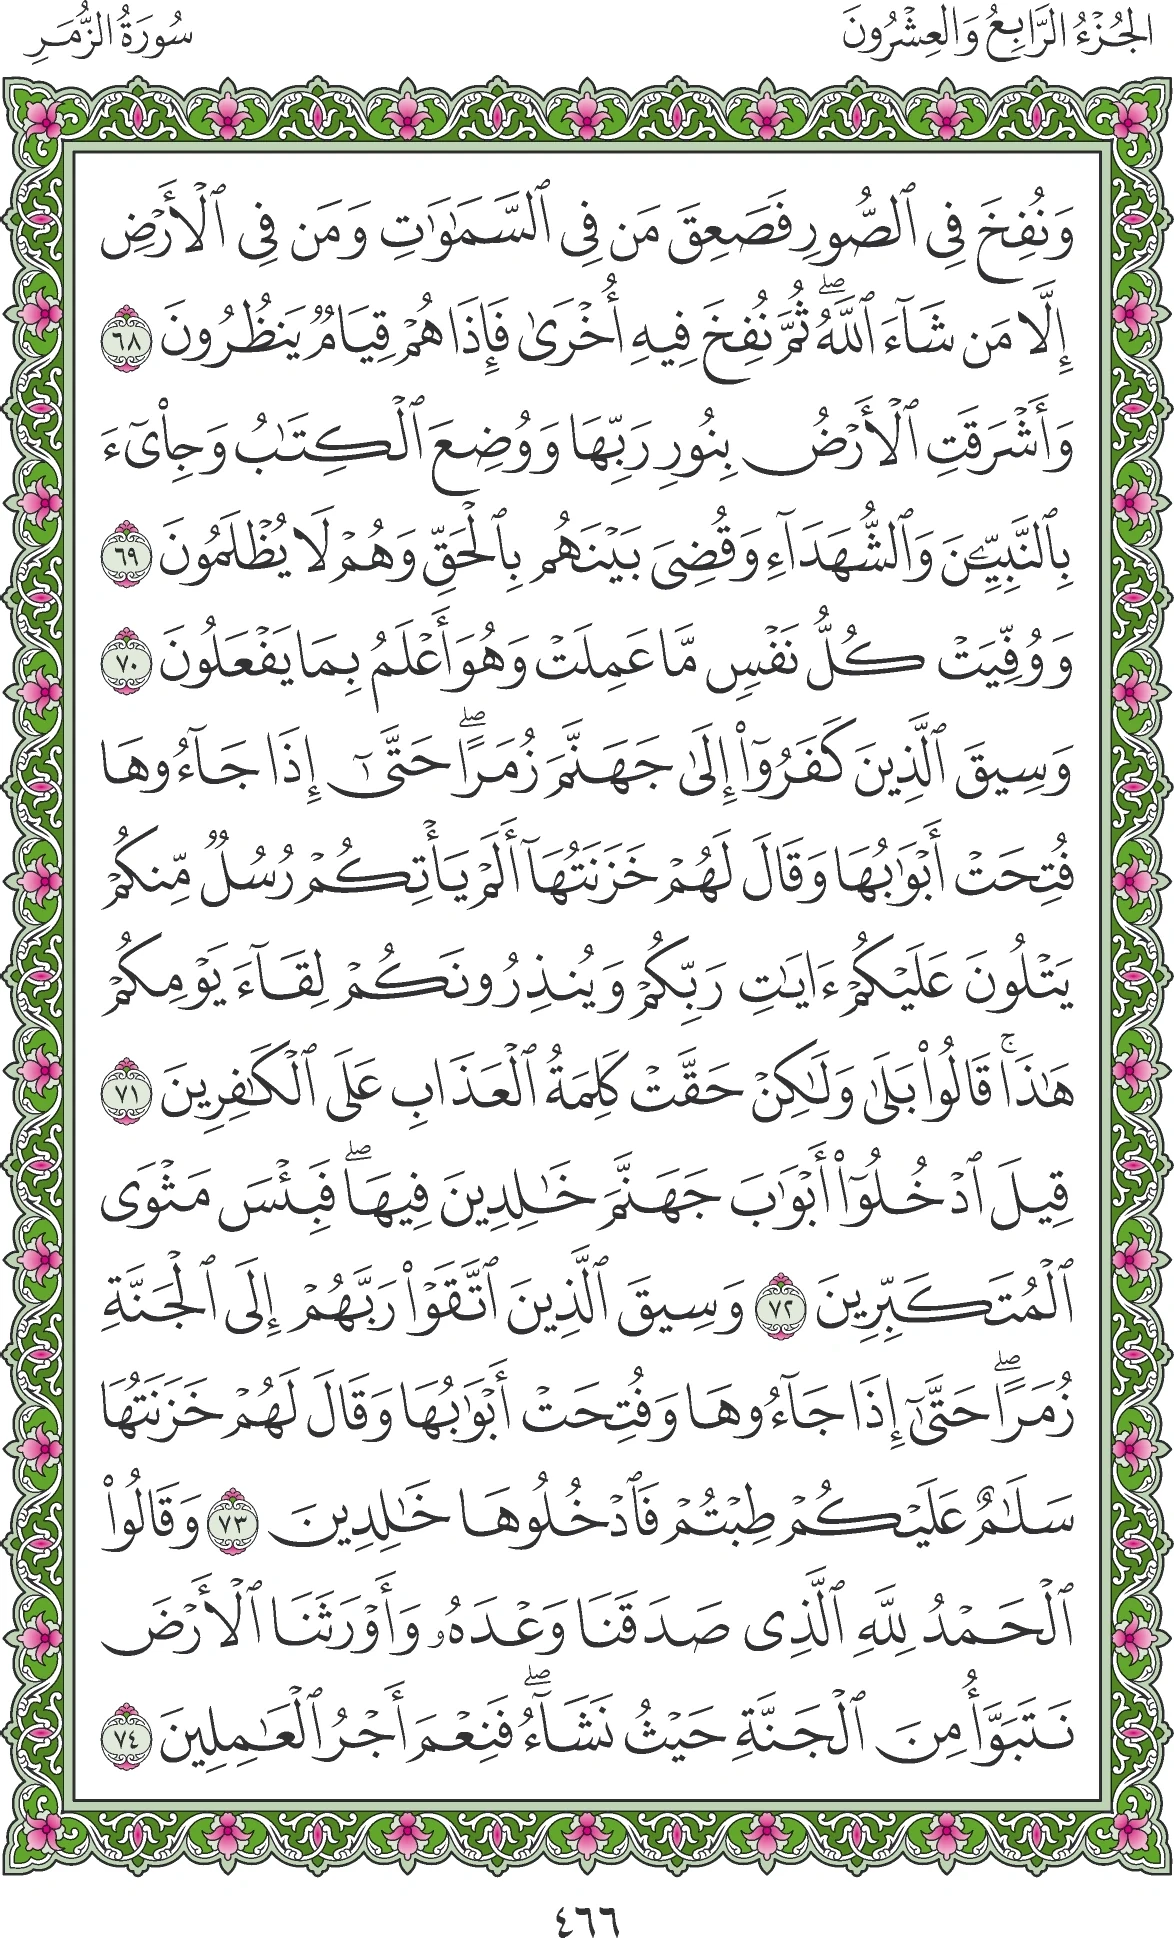 الجُزْءُ الرَّابِعُ وَالعِشْرُونَ
سُورَةُ الزُّمَرِ
وَنُفِخَ فِي ٱلصُّورِ فَصَعِقَ مَن فِي ٱلسَّمَٰوَٰتِ وَمَن فِي ٱلْأَرْضِ
إِلَّا مَن شَآءَ ٱللَّهُۖ ثُمَّ نُفِخَ فِيهِ أُخْرَىٰ فَإِذَا هُمْ قِيَامٌ يَنظُرُونَ ٦٨
وَأَشْرَقَتِ ٱلْأَرْضُ بِنُورِ رَبِّهَا وَوُضِعَ ٱلْكِتَٰبُ وَجِا۟يٓءَ
بِٱلنَّبِيِّـۧنَ وَٱلشُّهَدَآءِ وَقُضِيَ بَيْنَهُم بِٱلْحَقِّ وَهُمْ لَا يُظْلَمُونَ ٦٩
وَوُفِّيَتْ كُلُّ نَفْسٍ مَّا عَمِلَتْ وَهُوَ أَعْلَمُ بِمَا يَفْعَلُونَ ٧٠
وَسِيقَ ٱلَّذِينَ كَفَرُوٓا۟ إِلَىٰ جَهَنَّمَ زُمَرًاۖ حَتَّىٰٓ إِذَا جَآءُوهَا
فُتِحَتْ أَبْوَٰبُهَا وَقَالَ لَهُمْ خَزَنَتُهَآ أَلَمْ يَأْتِكُمْ رُسُلٌ مِّنكُمْ
يَتْلُونَ عَلَيْكُمْ ءَايَٰتِ رَبِّكُمْ وَيُنذِرُونَكُمْ لِقَآءَ يَوْمِكُمْ
هَٰذَاۚ قَالُوا۟ بَلَىٰ وَلَٰكِنْ حَقَّتْ كَلِمَةُ ٱلْعَذَابِ عَلَى ٱلْكَٰفِرِينَ ٧١
قِيلَ ٱدْخُلُوٓا۟ أَبْوَٰبَ جَهَنَّمَ خَٰلِدِينَ فِيهَاۖ فَبِئْسَ مَثْوَى
ٱلْمُتَكَبِّرِينَ ٧٢ وَسِيقَ ٱلَّذِينَ ٱتَّقَوْا۟ رَبَّهُمْ إِلَى ٱلْجَنَّةِ
زُمَرًاۖ حَتَّىٰٓ إِذَا جَآءُوهَا وَفُتِحَتْ أَبْوَٰبُهَا وَقَالَ لَهُمْ خَزَنَتُهَا
سَلَٰمٌ عَلَيْكُمْ طِبْتُمْ فَٱدْخُلُوهَا خَٰلِدِينَ ٧٣ وَقَالُوا۟
ٱلْحَمْدُ لِلَّهِ ٱلَّذِي صَدَقَنَا وَعْدَهُۥ وَأَوْرَثَنَا ٱلْأَرْضَ
نَتَبَوَّأُ مِنَ ٱلْجَنَّةِ حَيْثُ نَشَآءُۖ فَنِعْمَ أَجْرُ ٱلْعَٰمِلِينَ ٧٤
٤٦٦